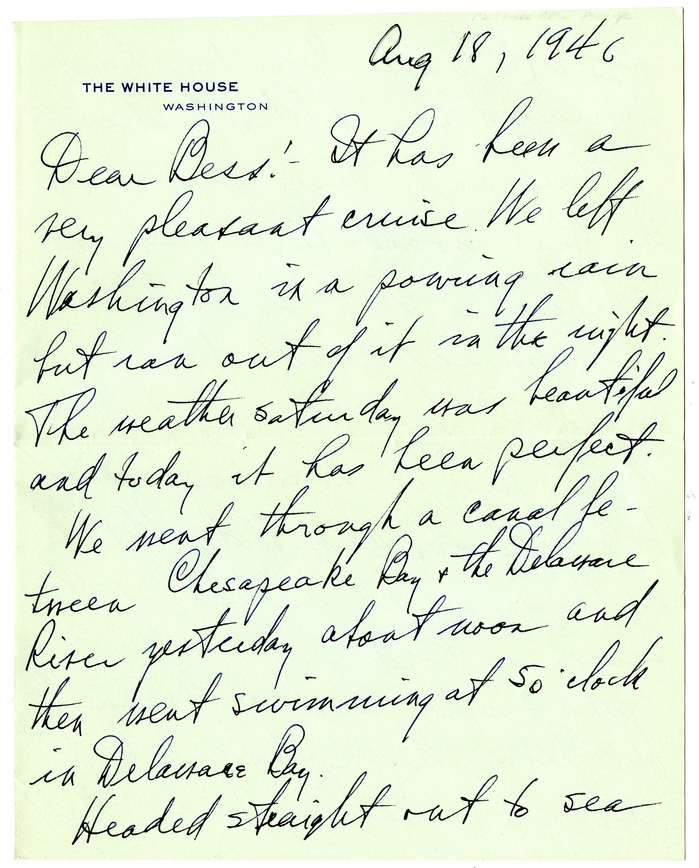 Aug 18, 1946
THE WHITE HOUSE
WASHINGTON
Dear Bess:- It has been a
very pleasant cruise. We left
Washington in a pouring rain
but ran out of it in the night.
The weather Saturday was beautiful
and today it has been perfect.
We went through a canal be-
tween Chesapeake Bay & the Delaware
River yesterday about noon and
then went swimming at 5 o'clock
in Delaware Bay.
Headed straight out to sea